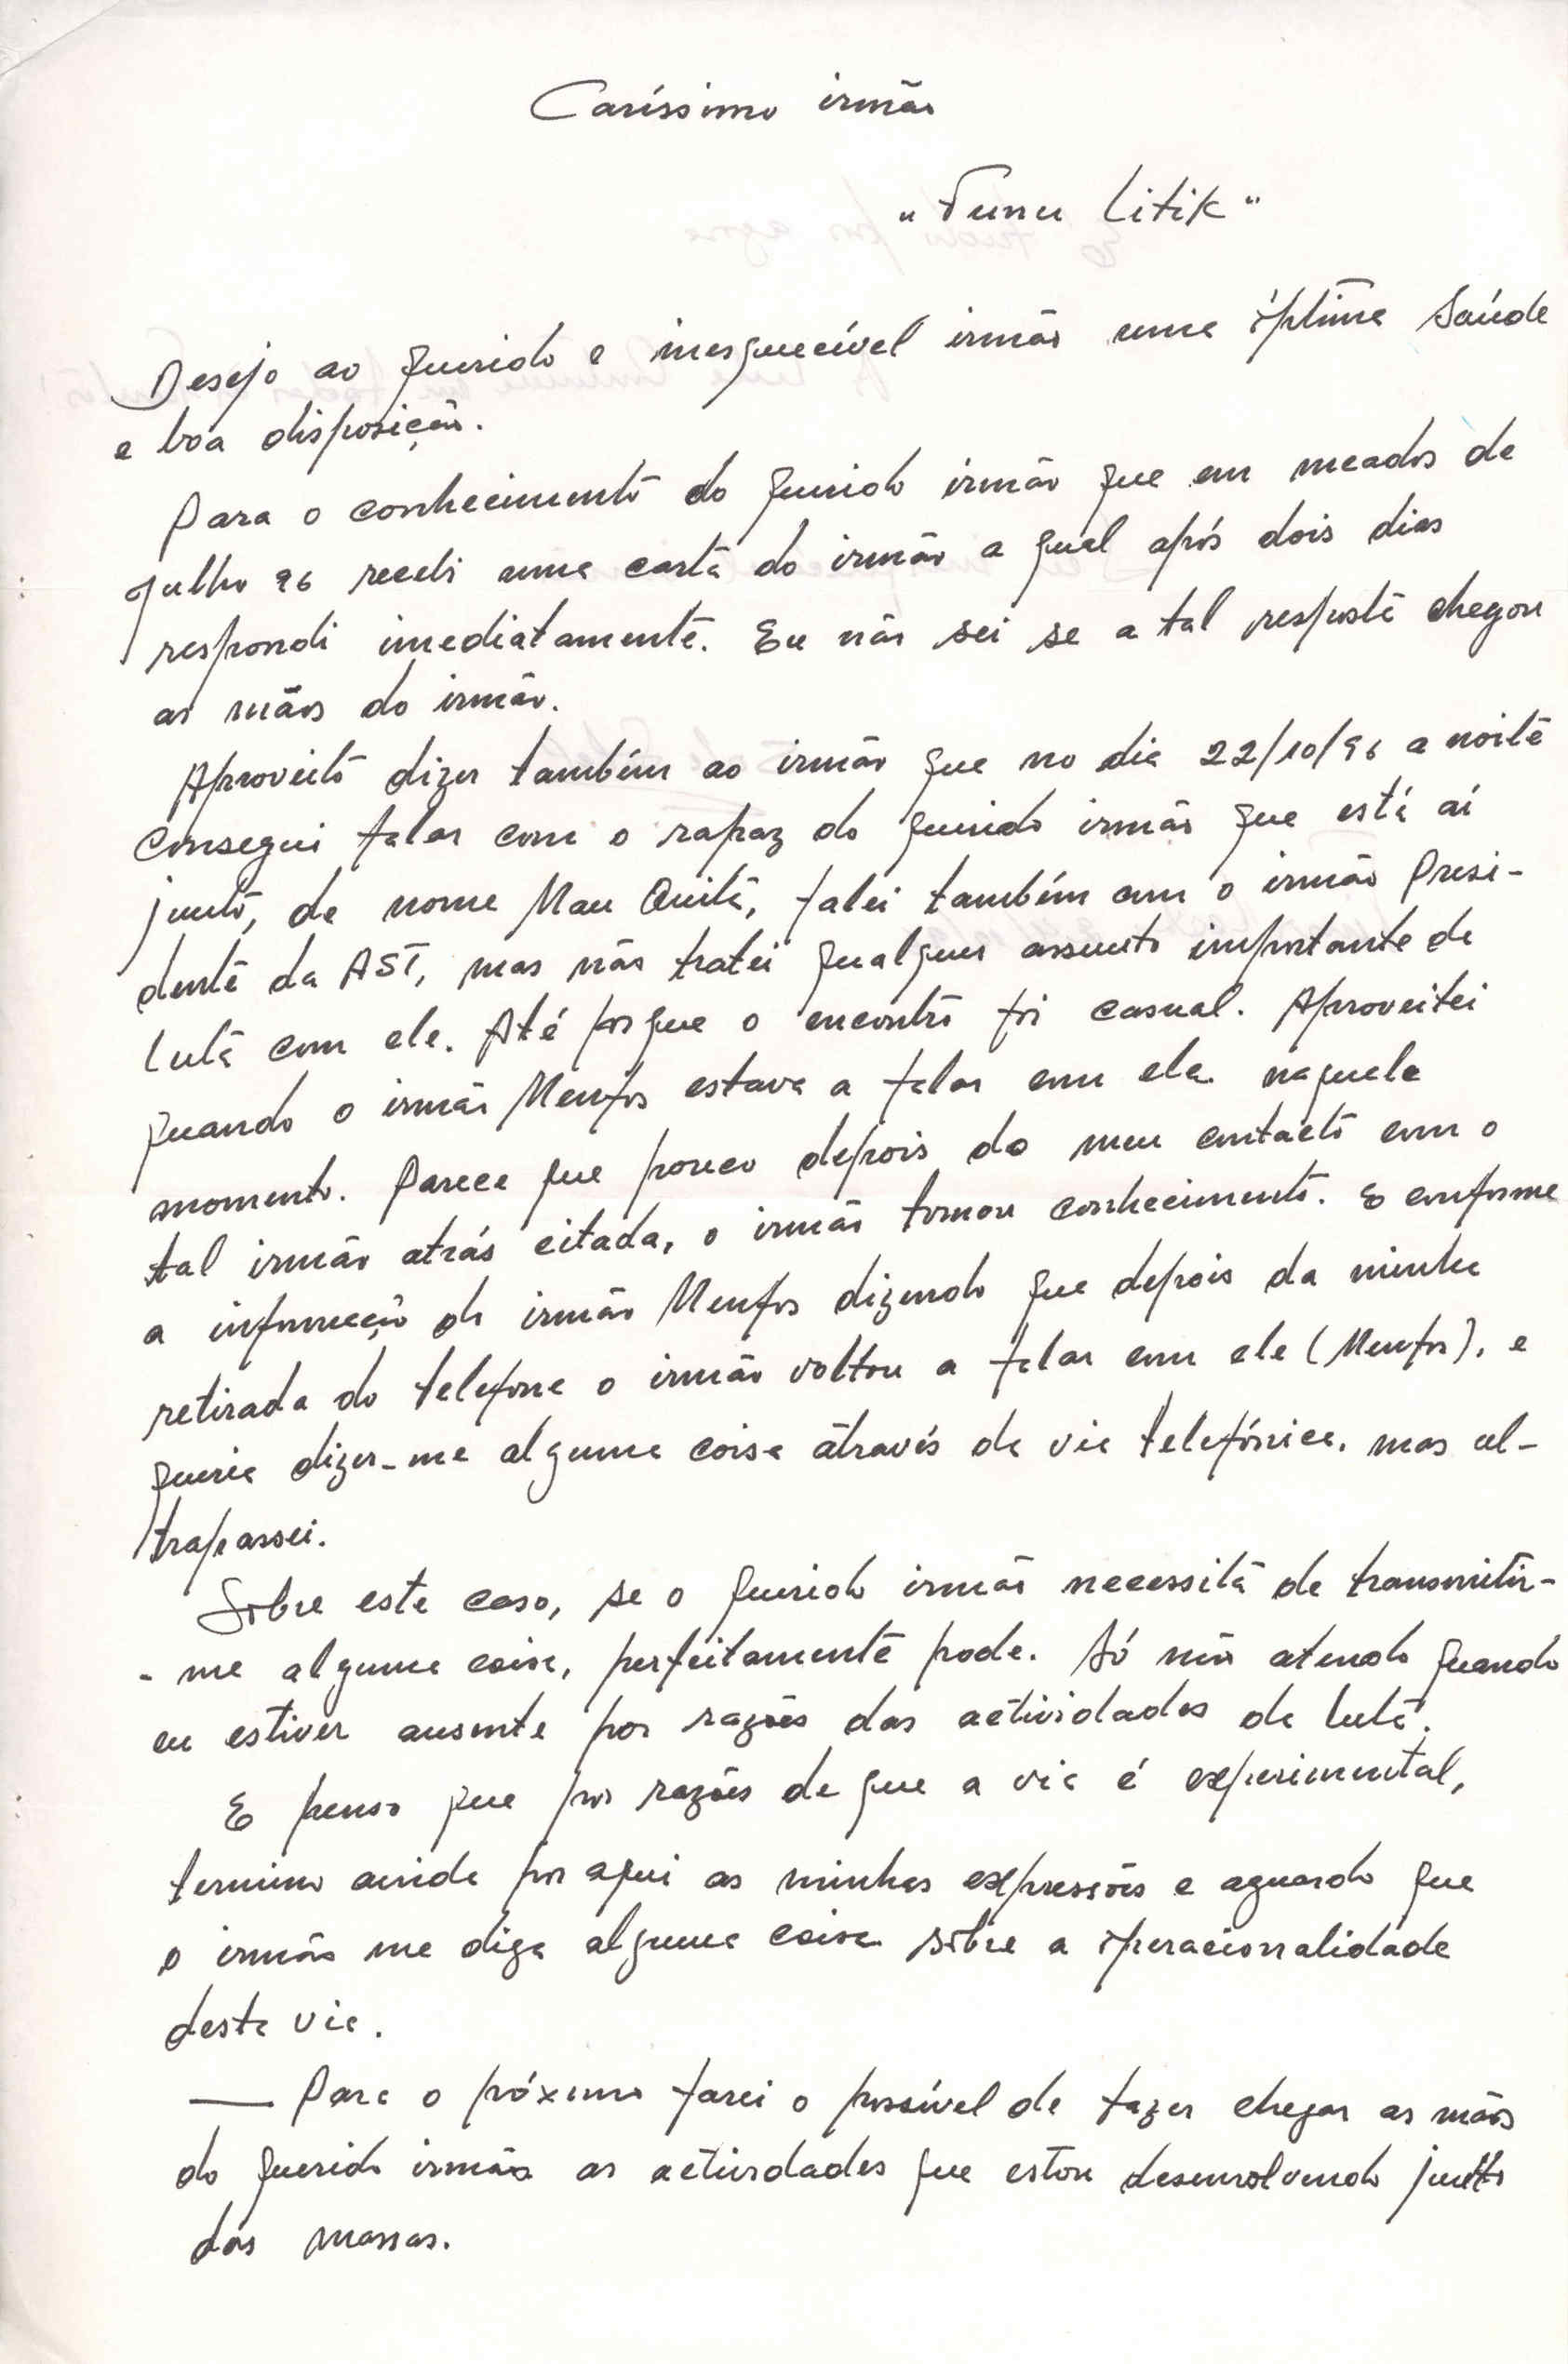 Caríssimo irmão
"Funu Litik"
Desejo ao querido e inesquecível irmão uma óptima saúde
e boa disposição.
Para o conhecimento do querido irmão que em meados de
Julho 96 recebi uma carta do irmão a qual após dois dias
respondi imediatamente. Eu não sei se a tal resposta chegou
as mãos do irmão.
Aproveito dizer também ao irmão que no dia 22/10/96 a noite
consegui falar com o rapaz do querido irmão que está aí
junto, de nome Mau Quita, falei também com o irmão Presi-
dente da AST, mas não tratei qualquer assunto importante de
luta com ele. Até porque o encontro foi casual. Aproveitei
quando o irmão Menfos estava a falar com ele naquele
momento. Parece que pouco depois do meu contacto com o
tal irmão atrás citada, o irmão tomou conhecimento. E conforme
a informação do irmão Menfos dizendo que depois da minha
retirada do telefone o irmão voltou a falar com ele (Menfos), e
queria dizer-me alguma coisa através da via telefónica. mas ul-
trapassei.
Sobre este caso, se o querido irmão necessita de transmitir-
-me alguma coisa, perfeitamente pode. Só não atendo quando
eu estiver ausente por razões das actividades da luta.
E penso que por razões de que a via é experimental,
termino ainda por aqui as minhas expressões e aguardo que
o irmão me diga alguma coisa sobre a operacionalidade
desta via.
— Para o próximo farei o possível de fazer chegar as mãos
do querido irmão as actividades que estou desenvolvendo junto
das massas.